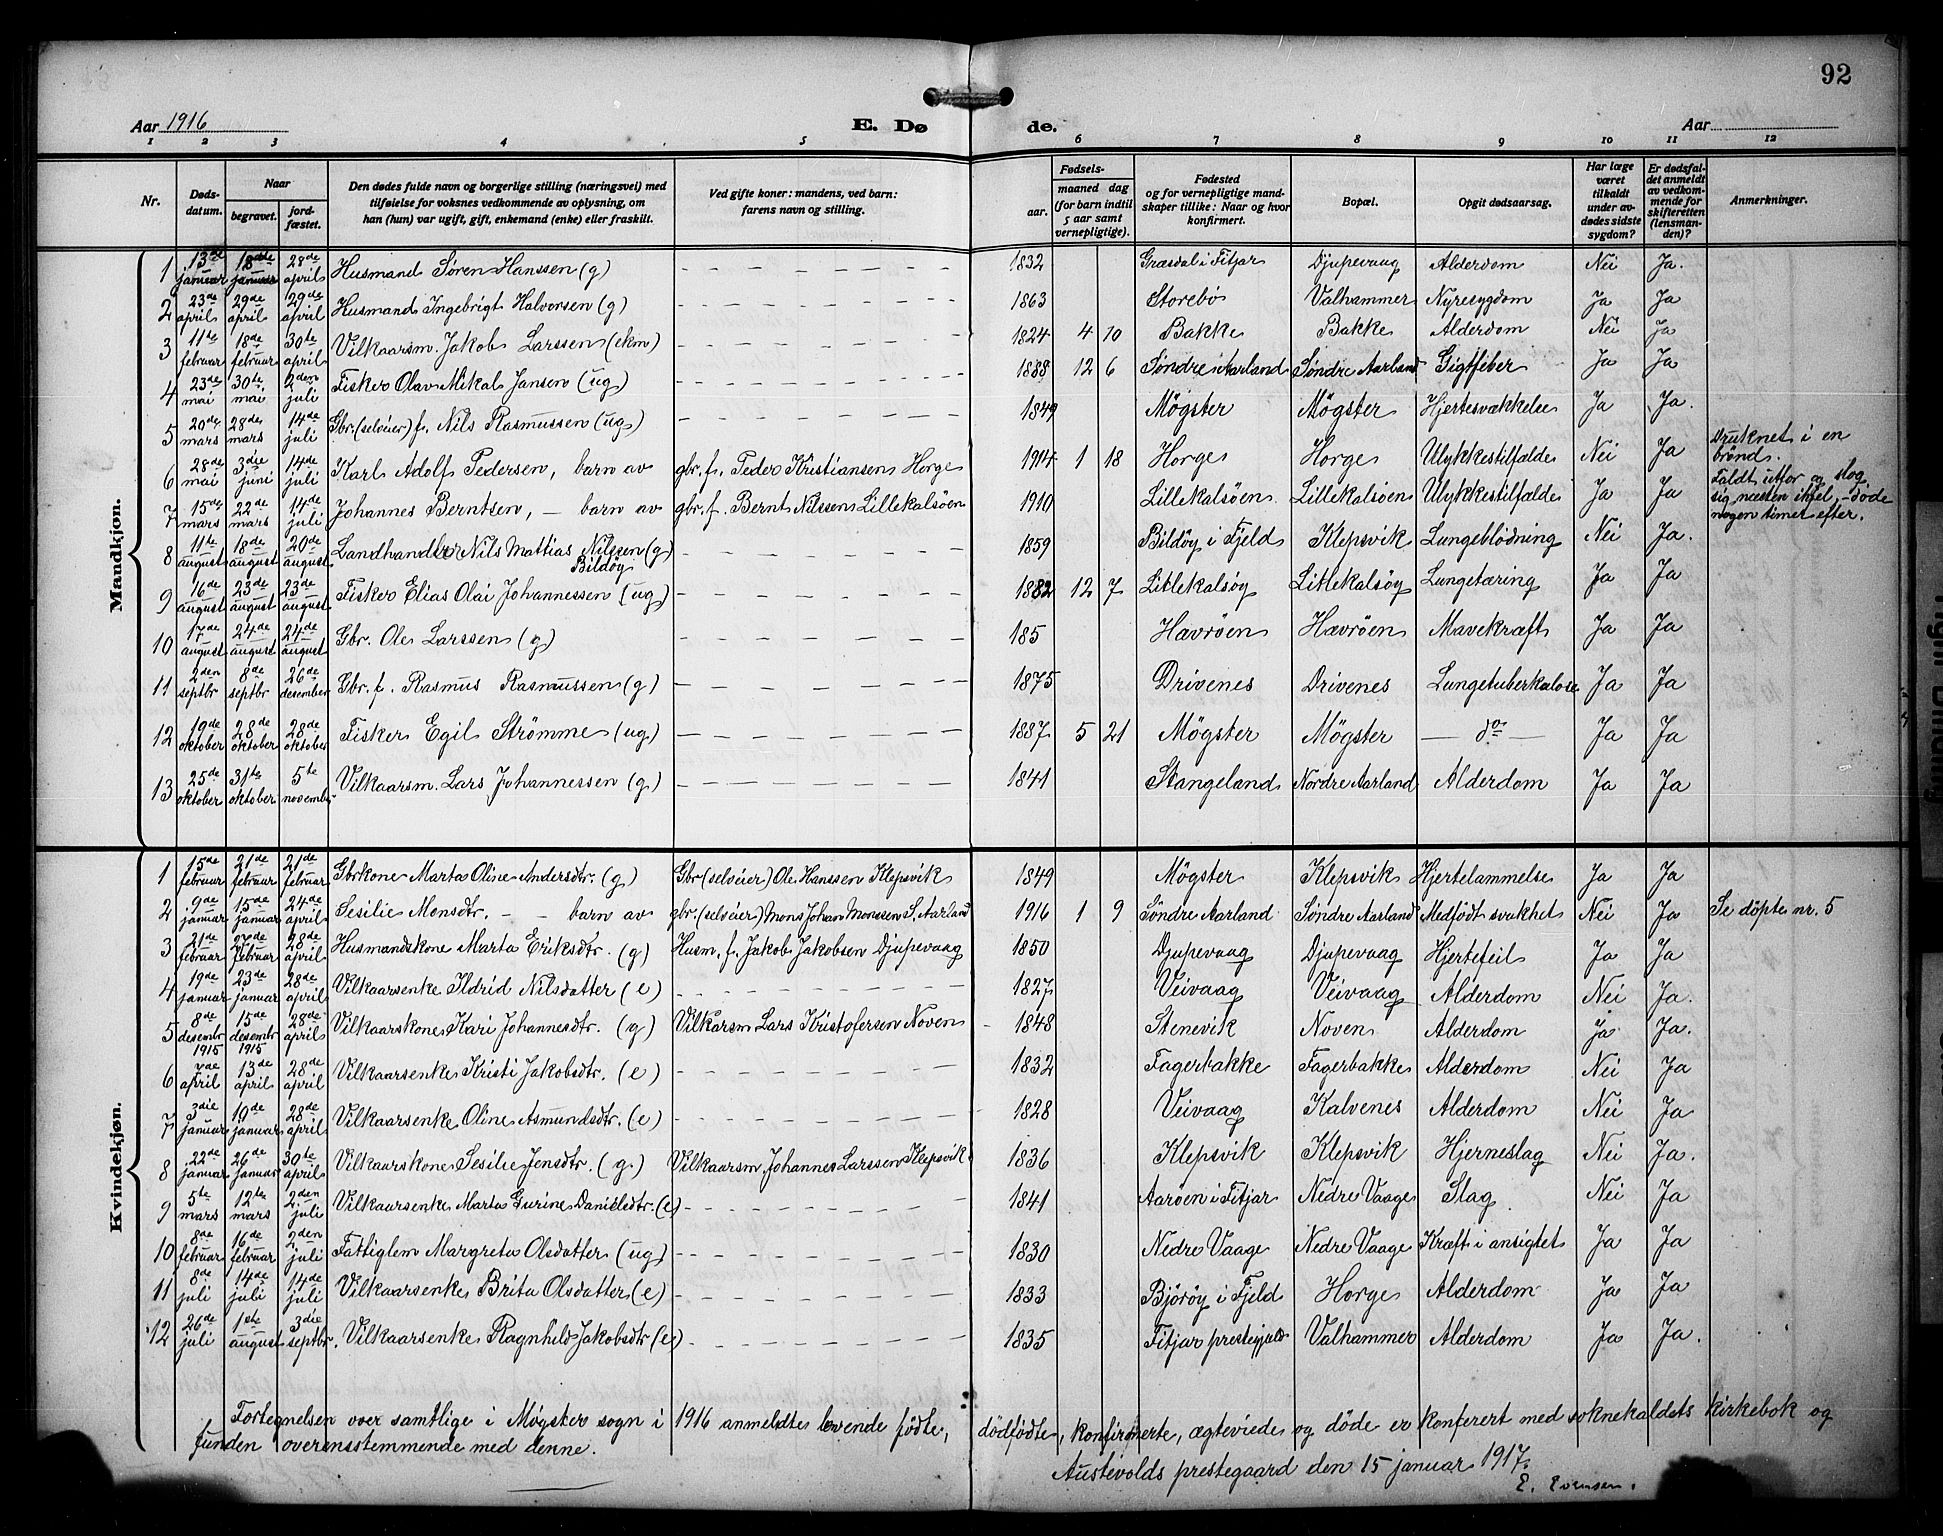 92
Aar 1916 E. Dø de. Aar
1 2 3 4 5 6 7 8 9 10 11 12
Nr. Døds-datum. Naar begravet. jord-fæstet. Den dødes fulde navn og borgerlige stilling (næringsvei) med tilføielse for voksnes vedkommende av oplysning, om han (hun) var ugift, gift, enkemand (enke) eller fraskilt. Ved gifte koner: mandens, ved barn: farens navn og stilling. Fødsels- aar. maaned dag (for barn indtil 5 aar samt vernepligtige). Fødested og for vernepligtige mandskaper tillike: Naar og hvor konfirmert. Bopæl. Opgit dødsaarsag. Har læge været tilkaldt under avdødes sidste sygdom? Er dødsfaldet anmeldt av vedkommende for skifteretten (lensmanden)? Anmerkninger.
Mandkjøn.
1 13de januar 18de januar 28de april Husmand Søren Hanssen (g) — 1832 Græsdal i Fitjar Djupevaag Alderdom Nei Ja.
2 23de april 29de april 29de april Husmand Ingebrigt Halvorsen (g) — 1863 Storebö Valhammer Nyresygdom Ja Ja
3 11te februar 18de februar 30te april Vilkaarsm. Jakob Larssen (ekm) — 1824 4 10 Bakke Bakke Alderdom Nei Ja
4 23de mai 30te mai 2den juli Fisker Olav Mikal Jansen (ug) — 1888 12 6 Söndre Aarland Söndre Aarland Gigtfeber Ja Ja
5 20de mars 28de mars 14de juli Gbr. (selveier) f. Nils Rasmussen (ug) — 1849 Mögster Mögster Hjertesvækkelse Ja Ja.
6 28de mai 3die juni 14de juli Karl Adolf Pedersen, barn av gbr. f. Peder Kristiansen Horge 1914 1 18 Horge Horge Ulykkestilfælde Nei Ja Druknet i en brönd.
7 15de mars 22de mars 14de juli Johannes Berntsen, — barn av gbr. f. Bernt Nilssen Lillekalsöen 1910 Lillekalsöen Lillekalsöen Ulykkestilfælde Ja Ja Faldt utfor og slog sig næsten ihjel, - döde nogen timer efter.
8 11te august 18de august 20de august Landhandler Nils Mattias Nilssen (g) Bildöy — 1859 Bildöy i Fjeld Klepsvik Lungeblödning Nei Ja.
9 16de august 23de august 23de august Fisker Elias Olai Johannessen (ug) — 1882 12 7 Litlekalsöy Litlekalsöy Lungetæring Ja Ja
10 17de august 24de august 24de august Gbr. Ole Larssen (g) — 185 Hævröen Hævröen Mavekræft Ja Ja
11 2den septbr 8de septbr 26de desember Gbr. f. Rasmus Rasmussen (g) — 1875 Drivenes Drivenes Lungetuberkulose Ja Ja
12 19de oktober 28de oktober 28de oktober Fisker Egil Strömme (ug) — 1887 5 21 Mögster Mögster — do — Ja Ja
13 25de oktober 31te oktober 5te november Vilkaarsm. Lars Johannessen (g) — 1841 Stangeland Nordre Aarland Alderdom Ja Ja
Kvindekjøn.
1 15de februar 21de februar 21de februar Gbrkone Marta Oline Andersdtr. (g) Gbr (selveier) Ole Hanssen Klepsvik 1849 Mögster Klepsvik Hjertelammelse Ja Ja
2 9de januar 15de januar 24de april Sesilie Monsdtr. - - barn av gbr. (selveier) Mons Johan Monssen S. Aarland 1916 1 9 Söndre Aarland Söndre Aarland Medfödt svakhet Nei Ja Se döpte nr. 5
3 21de februar 27de februar 28de april Husmandskone Marta Eriksdtr. (g) Husm. f. Jakob Jakobsen Djupevaag 1850 Djupevaag Djupevaag Hjertefeil Ja Ja
4 19de januar 23de januar 28de april Vilkaarsenke Ildrid Nilsdatter (e) — 1827 Veivaag Veivaag Alderdom Nei Ja.
5 8de desembr 1915 15de desembr 1915 28de april Vilkaarskone Kari Johannesdtr. (g) Vilkarsm Lars Kristofersen Noven 1848 Stenevik Noven Alderdom Ja Ja.
6 7de april 13de april 28de april Vilkaarsenke Kristi Jakobsdtr. (e) — 1832 Fagerbakke Fagerbakke Alderdom Nei Ja
7 3die januar 10de januar 28de april Vilkaarsenke Oline Asmundsdtr. (e) — 1828 Veivaag Kalvenes Alderdom Nei Ja
8 22de januar 26de januar 30te april Vilkaarskone Sesilie Jensdtr. (g.) Vilkaarsm Johannes Larssen Klepsvik 1836 Klepsvik Klepsvik Hjerneslag Nei Ja.
9 5te mars 12te mars 2den juli Vilkaarsenke Marta Gurine Danielsdtr. (e) — 1841 Aaröen i Fitjar Nedre Vaage Slag Nei Ja
10 8de februar 16de februar 2den juli Fattiglem Margreta Olsdatter (ug) — 1830 Nedre Vaage Nedre Vaage Kræft i ansigtet Ja Ja
11 8de juli 14de juli 14de juli Vilkaarsenke Brita Olsdatter (e) — 1833 Björöy i Fjeld Horge Alderdom Ja Ja
12 26de juli 1ste august 3die septbr. Vilkaarsenke Ragnhild Jakobsdtr (e) — 1835 Fitjar prestegjeld Valhammer Alderdom Ja Ja.
Fortegnelsen over samtlige i Mögster sogn i 1916 anmeldte levende födte, dödfödte, konfirmerte, ægteviede og döde er konferert med soknekaldets kirkebok og
funden overensstemmende med denne.
Austevolds prestegaard den 15 januar 1917.
E. Evensen.